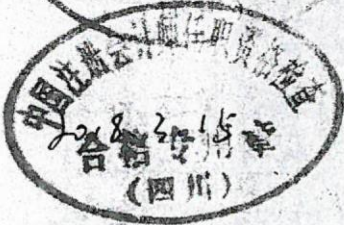 中国注册会计师任职资格检查
2018 3 15
合格专用章
(四川)